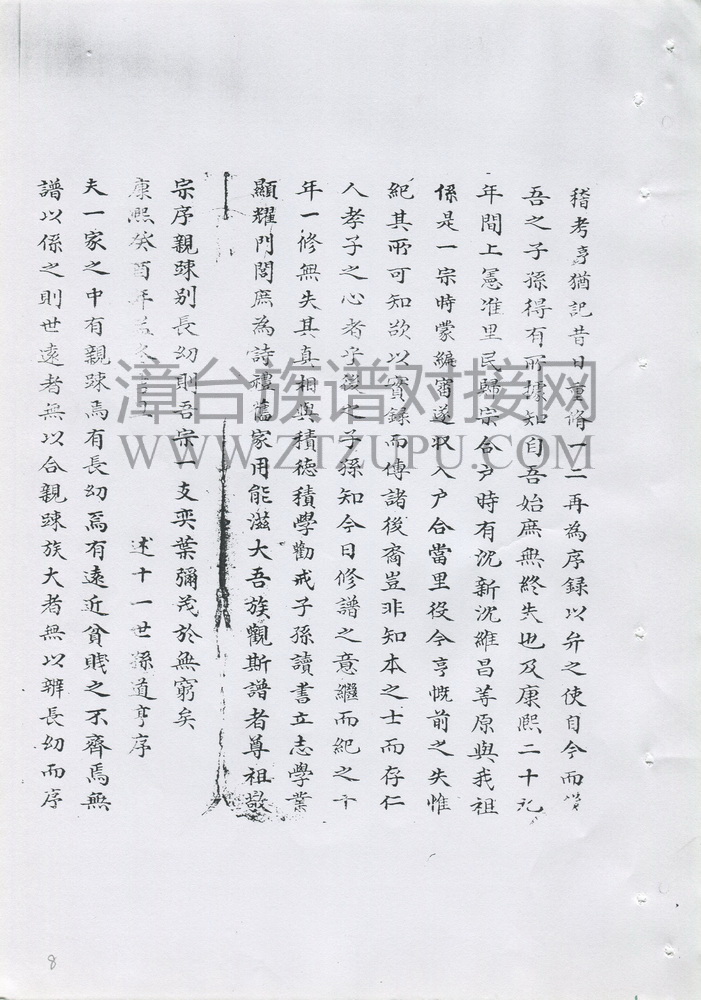 稽考亨猶記昔日重脩一二再為序録以弁之使自今而
吾之子孫得有所據知自吾始庶無終失也及康熙二十九
年間上憲准里民歸宗合户時有沈新沈維昌等原與我祖
係是一宗時蒙編審遂収入户合當里役今亨慨前之失惟
紀其所可知欲以實録而傳諸後裔豈非知本之士而存仁
人孝子之心者乎後之子孫知今日修譜之意繼而紀之十
年一修無失其真相與積德積學勸戒子孫讀書立志學業
顯耀門閭庶為詩禮舊家用能滋大吾族觀斯譜者尊祖敬
宗序親踈别長幼則吾宗一支奕葉彌茂於無窮矣
康熙癸酉年孟冬 述十一世孫道亨序
夫一家之中有親踈焉有長幼焉有遠近貧賤之不齊焉無
譜以係之則世遠者無以合親踈族大者無以辨長幼而序
漳台族谱对接网
WWW.ZTZUPU.COM
8